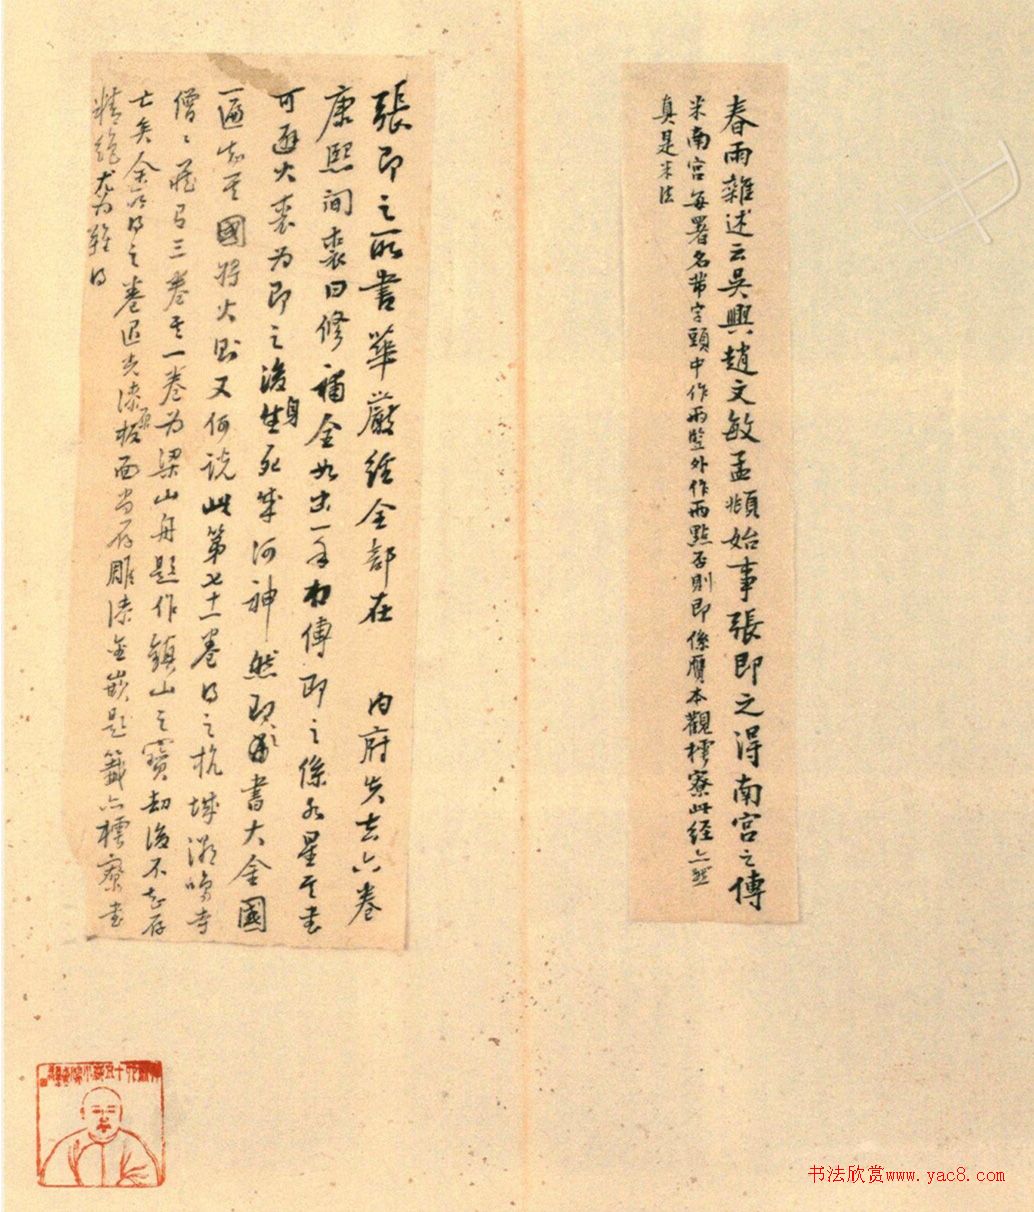 春雨雜述云吳興趙文敏孟頫始事張即之得南宮之傳
米南宮每署名芾字頭中作兩豎外作兩點否則即係贋本觀樗寮此經亦然
真是米法
張即之所書華嚴經全部在 內府失去六卷
康熙間裘曰修補全如出一手相傳即之係水星其書
可避火裘為即之後身生死成河神 然即之書大金國
遍知其國將火則又何說此第七十一卷得之杭城潮鳴寺
僧僧藏有三卷其一卷為梁山舟題作鎮山之寶劫後不知存
亡矣余所得之卷退光漆原板面尚存雕漆金嵌題籤亦樗寮書
精絕尤為難得
書法欣賞www.yac8.com